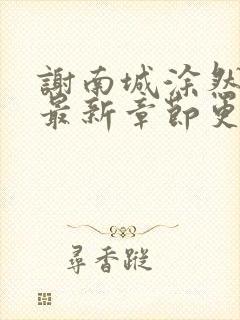 謝南城涂然
最新章節更
尋香蹤